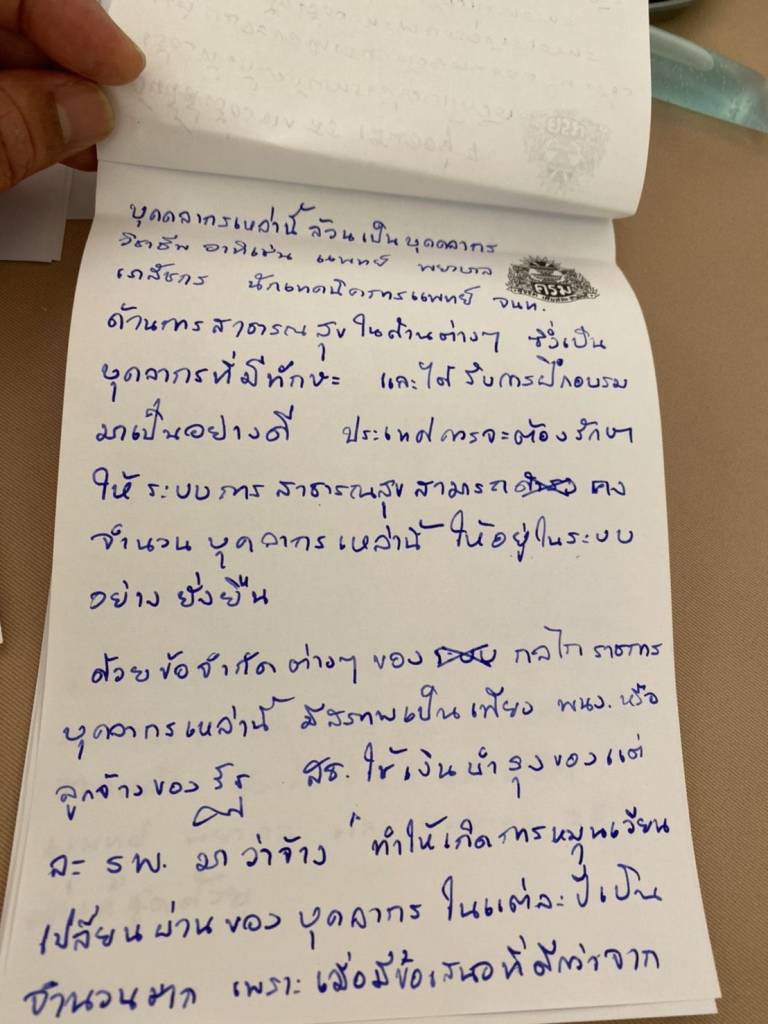 บุคคลากรเหล่านี้ ล้วนเป็นบุคคลากร
วิชาชีพ อาทิเช่น แพทย์ พยาบาล
เภสัชกร นักเทคนิคการแพทย์ จนท.
ครม
ด้านการสาธารณสุขในด้านต่างๆ ซึ่งเป็น
บุคลากรที่มีทักษะ และได้รับการฝึกอบรม
มาเป็นอย่างดี ประเทศควรจะต้องรักษา
ให้ระบบการสาธารณสุขสามารถ คง
จำนวนบุคลากรเหล่านี้ ให้อยู่ในระบบ
อย่างยั่งยืน
ด้วยข้อจำกัดต่างๆ ของ กลไกราชการ
บุคลากรเหล่านี้ มีสภาพเป็นเพียง พนง. หรือ
ลูกจ้างของรัฐ ที่ สธ. ใช้เงินบำรุงของแต่
ละ รพ. มาว่าจ้าง ทำให้เกิดการหมุนเวียน
เปลี่ยนผ่านของบุคลากร ในแต่ละปีเป็น
จำนวนมาก เพราะเมื่อมีข้อเสนอที่ดีกว่าจาก